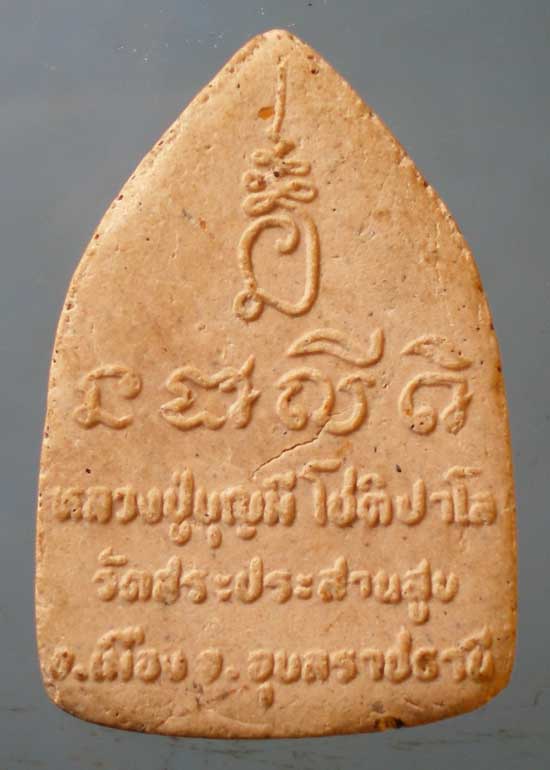 หลวงปู่บุญมี โชติปาโล
วัดสระประสานสุข
อ.เมือง จ.อุบลราชธานี